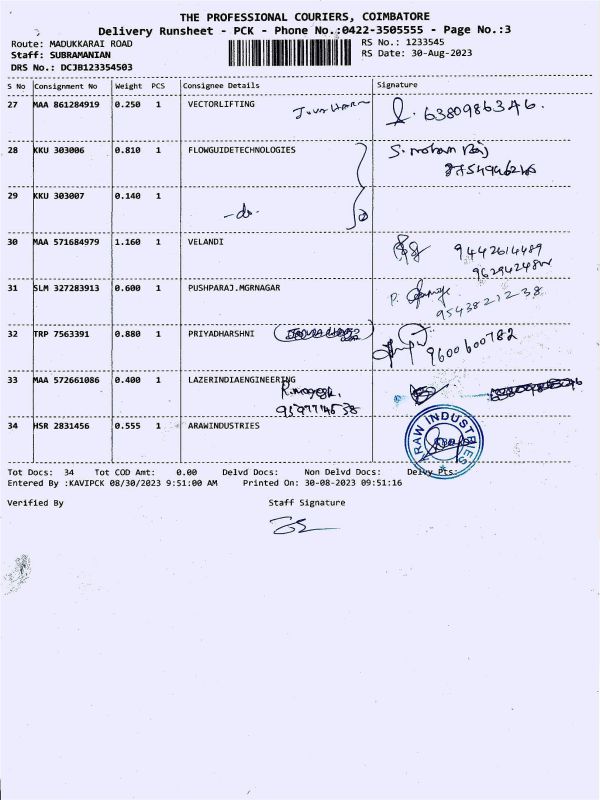 THE PROFESSIONAL COURIERS, COIMBATORE
Delivery Runsheet - PCK - Phone No.:0422-3505555 - Page No.:3
Route: MADUKKARAI ROAD RS No.: 1233545
Staff: SUBRAMANIAN RS Date: 30-Aug-2023
DRS No.: DCJB123354503
S No Consignment No Weight PCS Consignee Details Signature
27 MAA 861284919 0.250 1 VECTORLIFTING 6380986346.
28 KKU 303006 0.810 1 FLOWGUIDETECHNOLOGIES S. mohan Raj
29 KKU 303007 0.140 1
-do-
30 MAA 571684979 1.160 1 VELANDI 9442614489
31 SLM 327283913 0.600 1 PUSHPARAJ.MGRNAGAR P.
9543821238
32 TRP 7563391 0.880 1 PRIYADHARSHNI 9600600782
33 MAA 572661086 0.400 1 LAZERINDIAENGINEERING
R.nagesh.
34 HSR 2831456 0.555 1 ARAWINDUSTRIES
RAW INDUSTRIES
Tot Docs: 34 Tot COD Amt: 0.00 Delvd Docs: Non Delvd Docs: Delvy Pts:
Entered By :KAVIPCK 08/30/2023 9:51:00 AM Printed On: 30-08-2023 09:51:16
Verified By Staff Signature